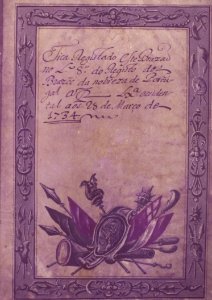 Fica Registado este Brazaõ
no L.º 8.º do Registo dos
Brazões da nobreza de Portu=
gal a f 
tal aos 28 de Março de
1734